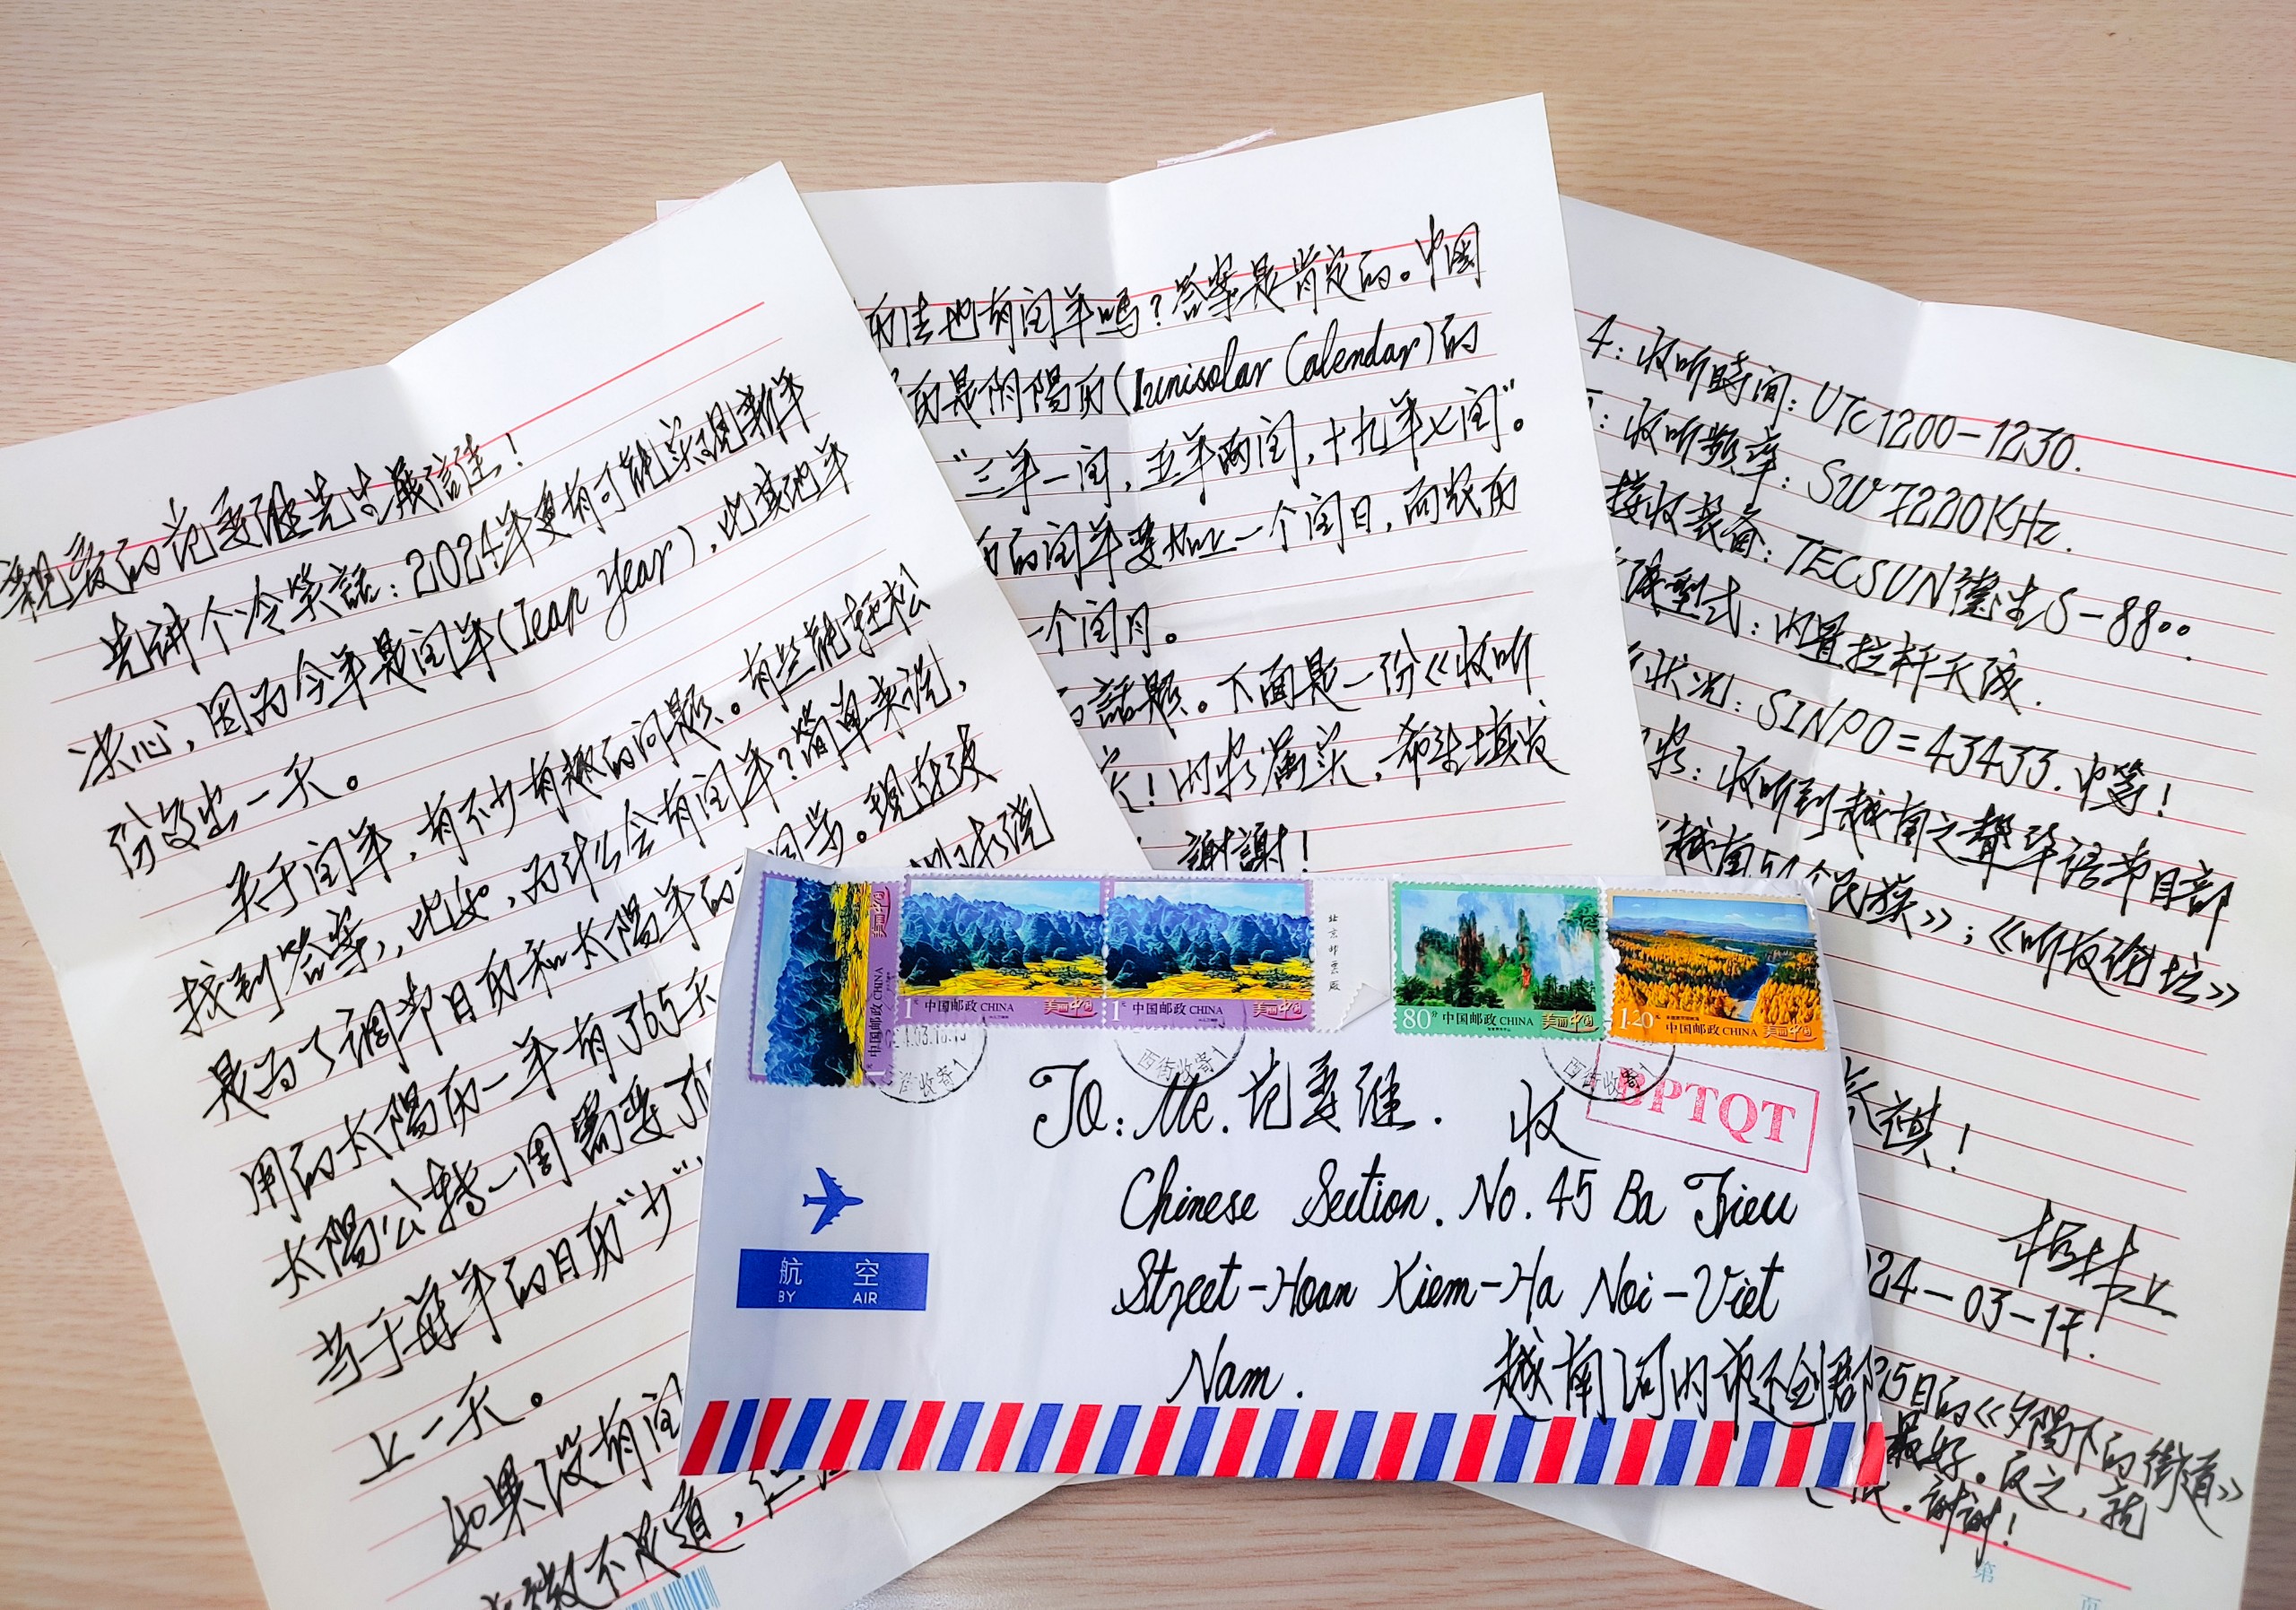 親爱的范英雄先生展信佳!
先讲个冷笑話:2024年更有可能实现新年
决心,因为今年是闰年(leap year),比其他年
份多出一天。
关于闰年,有不少有趣的问题。有些能轻松
找到答案,比如,为什么会有闰年?简单来说,
是为了調节日历和太陽年的
用的太陽历一年有365天
太陽公转一周需要
当于每年的日历"少"
上一天。
如果没有闰
微不足道,
历法也有闰年吗?答案是肯定的。中国
历是阴陽历(lunisolar Calendar)的
"三年一闰,五年两闰,十九年七闰"。
历的闰年要加上一个闰日,而农历
一个闰月。
話題。下面是一份《收听
内容, 希望填发
謝謝!
4:收听時间:UTC 1200-1230.
收听频率:SW 7220KHz.
接收装备:TECSUN 德生S-8800.
型式:内置拉杆天线.
状况:SINPO=43433.中等!
收听到越南之聲华语节目部
《越南54个民族》;《听友论坛》
祺!
24-03-17.
5日的《夕陽下的街道》
最好。反之,就
謝謝!
第 页
1元 中国邮政 CHINA 美丽中国
1元 中国邮政 CHINA 美丽中国
1元 中国邮政 CHINA 美丽中国
北京邮票厂
80分 中国邮政 CHINA 美丽中国
1.20元 中国邮政 CHINA 美丽中国
西街收寄1
西街收寄
BPTQT
To: Mr. 范 雄. 收
Chinese Section. No. 45 Ba Trieu
Street-Hoan Kiem-Ha Noi-Viet
Nam.
越南河内市还剑郡
航 空
BY AIR